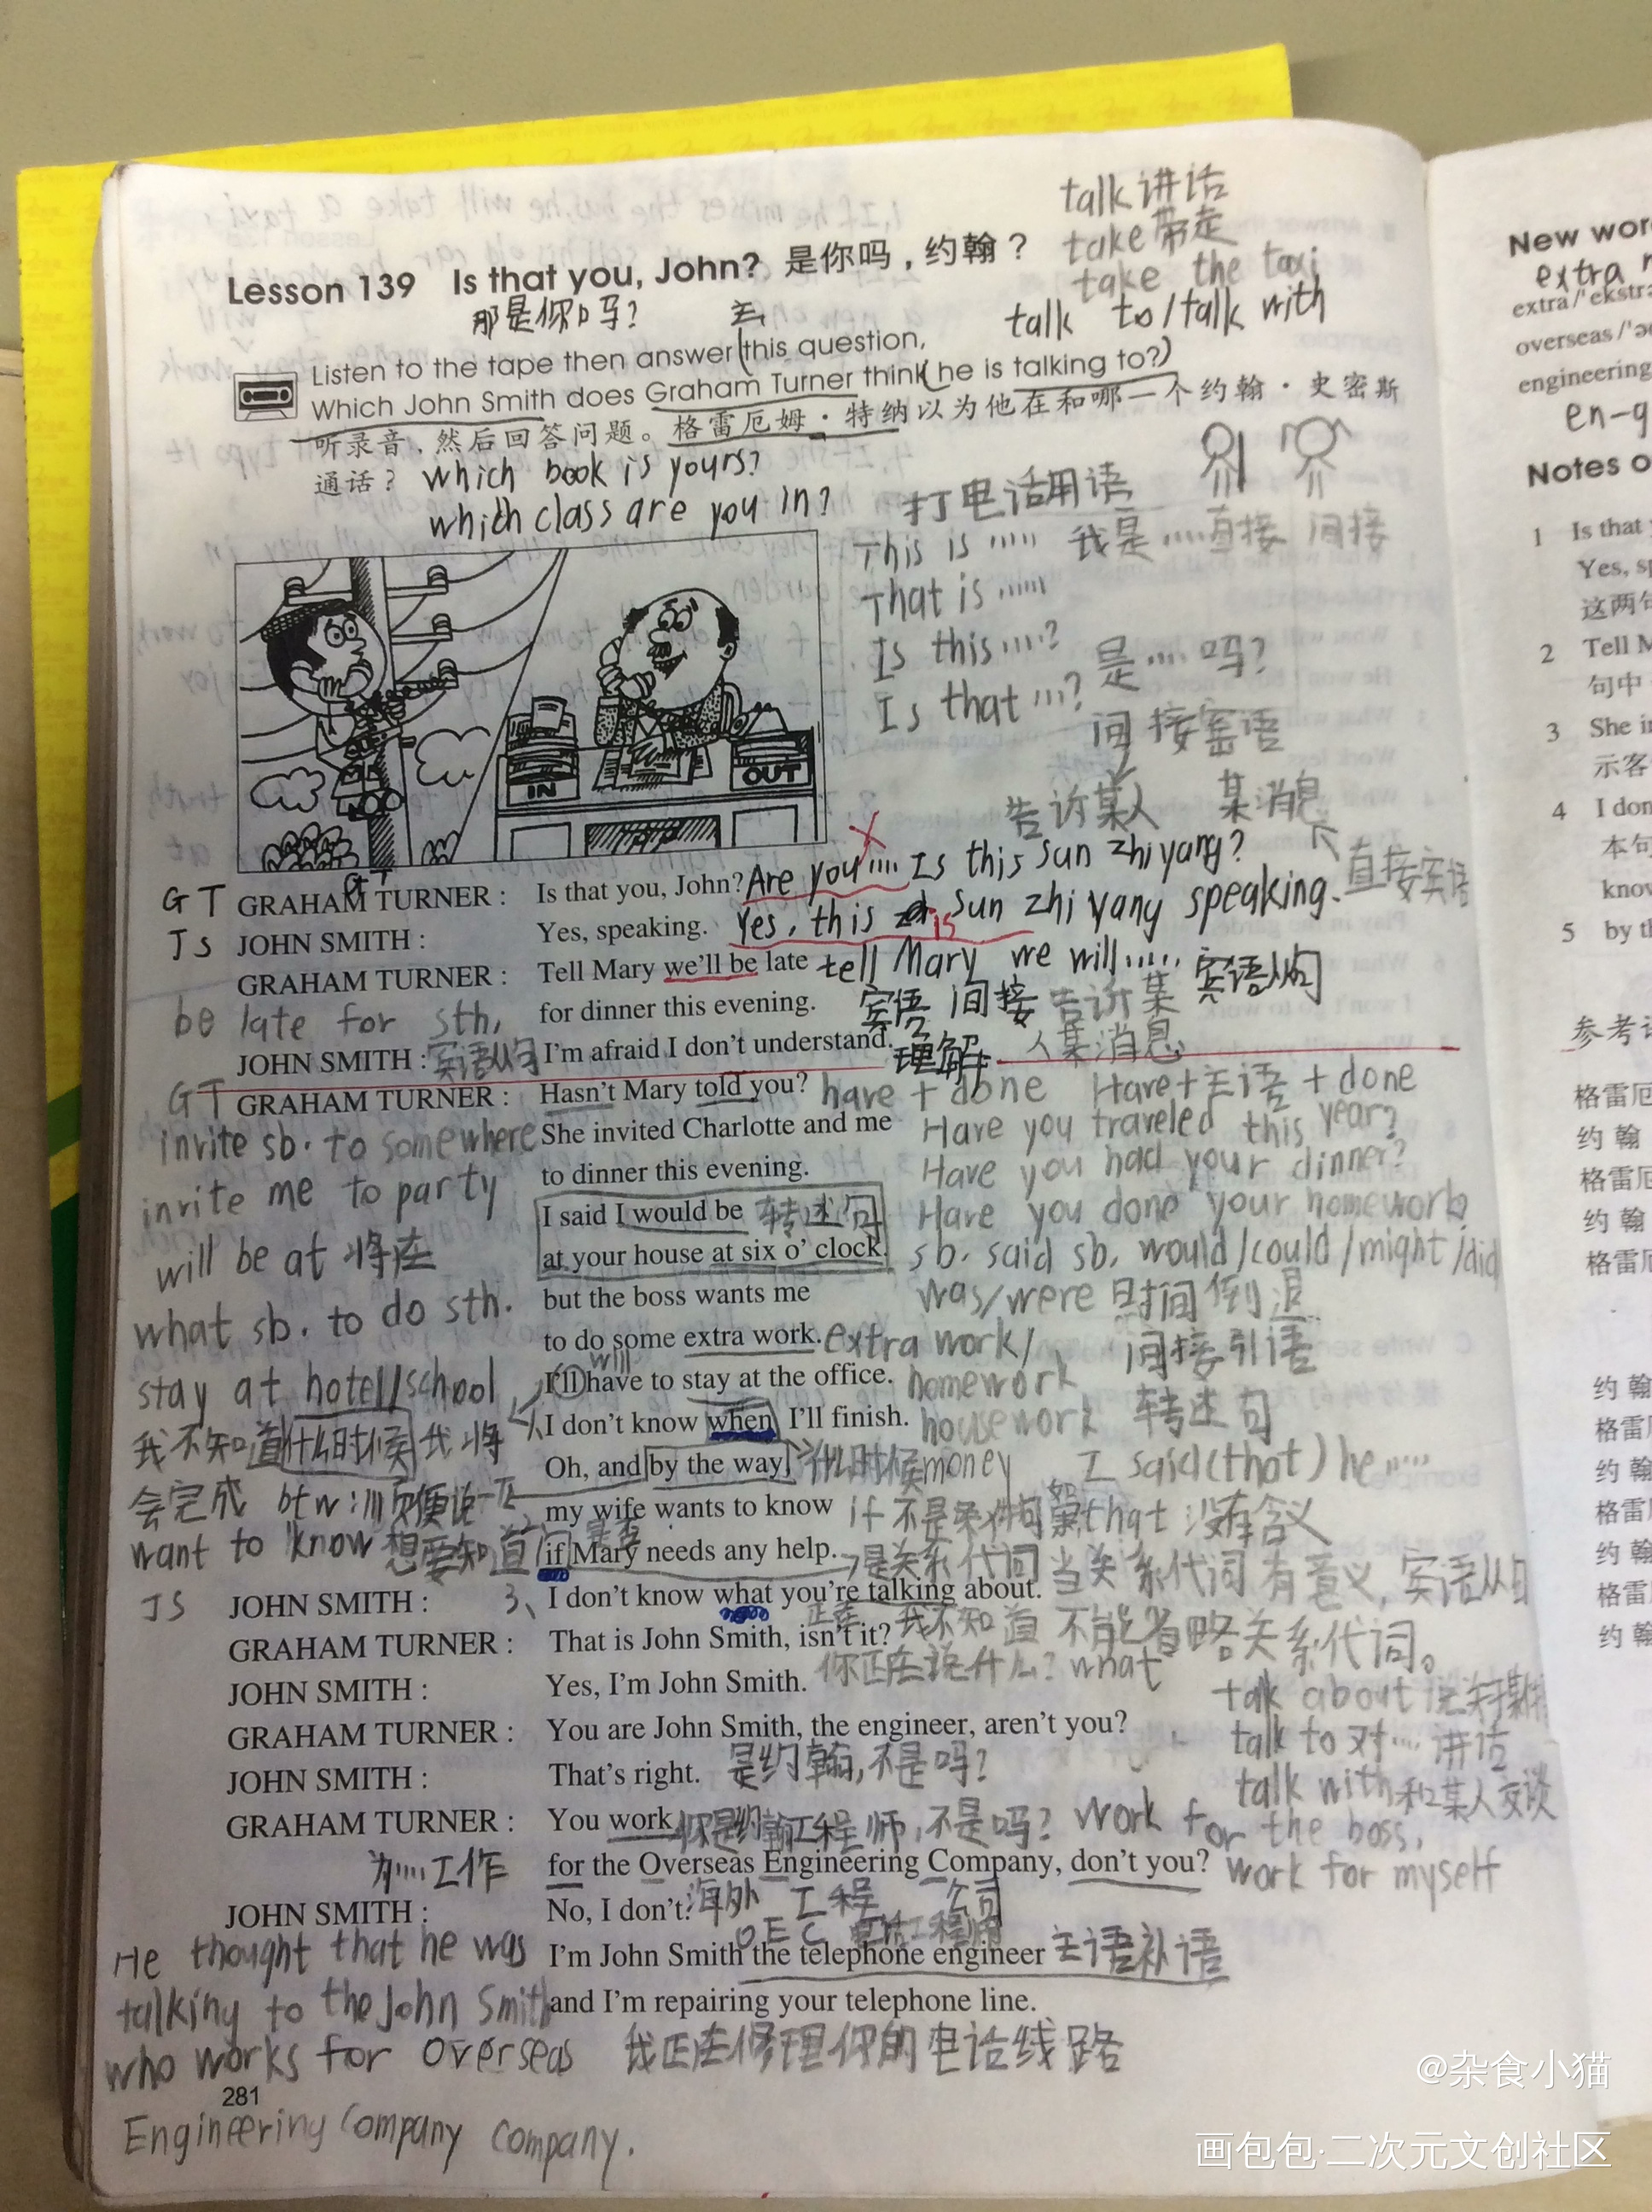 talk 讲话
take 带走
take the taxi
talk to/talk with
Lesson 139 Is that you, John? 是你吗，约翰？
那是你吗?
Listen to the tape then answer this question,
Which John Smith does Graham Turner think he is talking to?
听录音，然后回答问题。格雷厄姆·特纳以为他在和哪一个约翰·史密斯
通话？ which book is yours?
which class are you in?
打电话用语
This is ..... 我是.....直接 间接
That is .....
Is this ....?
Is that ...? 是.... 吗?
间接宾语
IN
OUT
告诉某人 某消息
直接宾语
GT GRAHAM TURNER : Is that you, John? Are you .... Is this sun zhi yang?
JS JOHN SMITH : Yes, speaking. Yes, this is sun zhi yang speaking.
GRAHAM TURNER : Tell Mary we'll be late tell Mary we will ..... 宾语从句
be late for sth, for dinner this evening. 宾语 间接 告诉某
人某消息
JOHN SMITH : 宾语从句 I'm afraid I don't understand. 理解
GT GRAHAM TURNER : Hasn't Mary told you? have + done Have+主语+done
invite sb. to somewhere She invited Charlotte and me Have you traveled this year?
to dinner this evening. Have you had your dinner?
invite me to party
I said I would be 转述句 Have you done your homework
will be at 将在 at your house at six o' clock. sb. said sb. would/could/might/did
but the boss wants me was/were 时间倒退
what sb. to do sth. to do some extra work. extra work/ 间接引语
will
stay at hotel/school I'll have to stay at the office. homework
我不知道什么时候我将 I don't know when I'll finish. housework 转述句
Oh, and by the way, 什么时候 money I said(that) he .....
会完成 btw:顺便说一下 my wife wants to know if 不是条件句 that 没有含义
want to know 想要知道 if Mary needs any help. 是关系代词 当关系代词有意义,宾语从句
JS JOHN SMITH : 3、I don't know what you're talking about.
正在 我不知道 不能省略关系代词。
GRAHAM TURNER : That is John Smith, isn't it?
你正在说什么? what
JOHN SMITH : Yes, I'm John Smith.
talk about
GRAHAM TURNER : You are John Smith, the engineer, aren't you?
talk to 对... 讲话
JOHN SMITH : That's right. 是约翰,不是吗?
talk with 和某人交谈
GRAHAM TURNER : You work 你是约翰工程师,不是吗? work for the boss,
为....工作 for the Overseas Engineering Company, don't you? work for myself
JOHN SMITH : No, I don't. 海外 工程 公司
OEC 电话工程师
I'm John Smith the telephone engineer 主语补语
and I'm repairing your telephone line.
我正在修理你的电话线路
He thought that he was
talking to the John Smith
who works for overseas
281
Engineering Company company.
New wor
extra
extra /'ekstr
overseas /'
engineering
en-g
Notes o
1 Is that
Yes, s
这两句
2 Tell M
句中
3 She i
示客
4 I don
本句
know
5 by t
参考
格雷厄
约 翰
格雷厄
约 翰
格雷厄
约 翰
格雷厄
约 翰
格雷厄
约 翰
格雷厄
约 翰
@杂食小猫
画包包·二次元文创社区